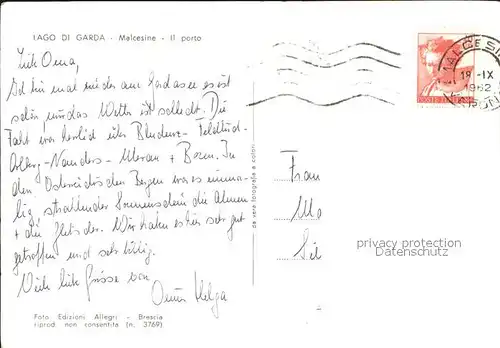 LAGO DI GARDA - Malcesine - Il porto
Liebe Oma,
sind mal wieder am Gardasee es ist
schön, nur das Wetter ist schlecht. Die
Fahrt war herrlich über Bludenz - Feldkirch
Arlberg - Nauders - Meran + Bozen. In
den Österreichischen Bergen war es einma-
lig, strahlender Sonnenschein die Almen
+ die Gletscher. Wir haben es hier sehr gut
getroffen und sehr billig.
Viele liebe Grüsse von
Helga
Foto Edizioni Allegri - Brescia
riprod. non consentita (n. 3769)
da vere fotografie a colori
MALCESINE
19 -IX
1962
POSTE ITALIANE
Frau
privacy protection
Datenschutz